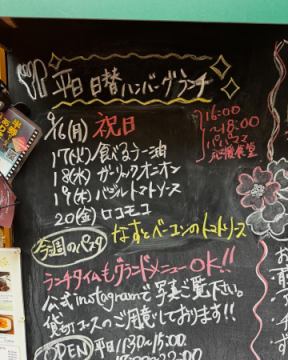 平日 日替ハンバーグランチ
9/16(月) 祝日
16:00
～18:00
17(火)食べるラー油
18(水)ガーリックオニオン
19(木)バジルトマトソース
20(金)ロコモコ
今週のパスタ なすとベーコンのトマトソース
ランチタイムもグランドメニューOK!!
公式instagramで写真ご覧下さい。
貸切コースのご用意しております!!
OPEN 平日 11:30～15:00